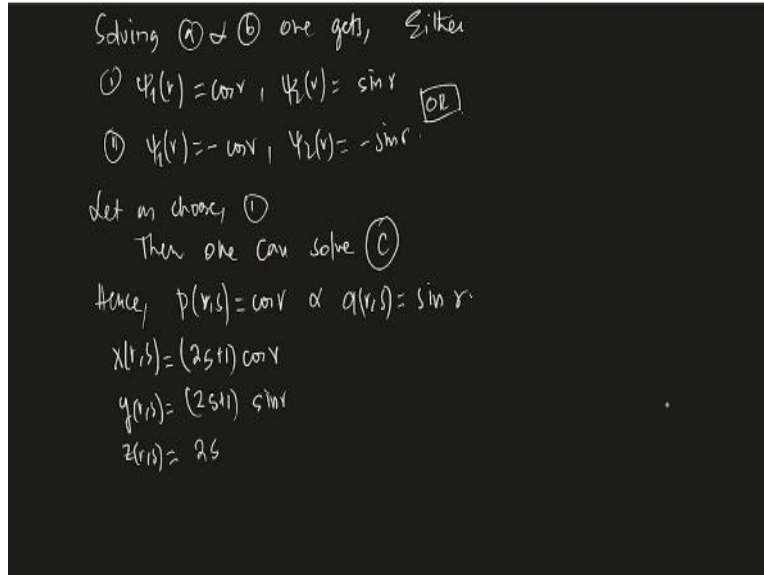 Solving ⓐ & ⓑ one gets, Either
① ψ₁(r) = cos r, ψ₂(r) = sin r
OR
⑪ ψ₁(r) = - cos r, ψ₂(r) = - sin r.
Let us choose, ①
Then one can solve Ⓒ
Hence, p(r,s) = cos r & q(r,s) = sin r.
x(r,s) = (2s+1) cos r
y(r,s) = (2s+1) sin r
z(r,s) = 2s